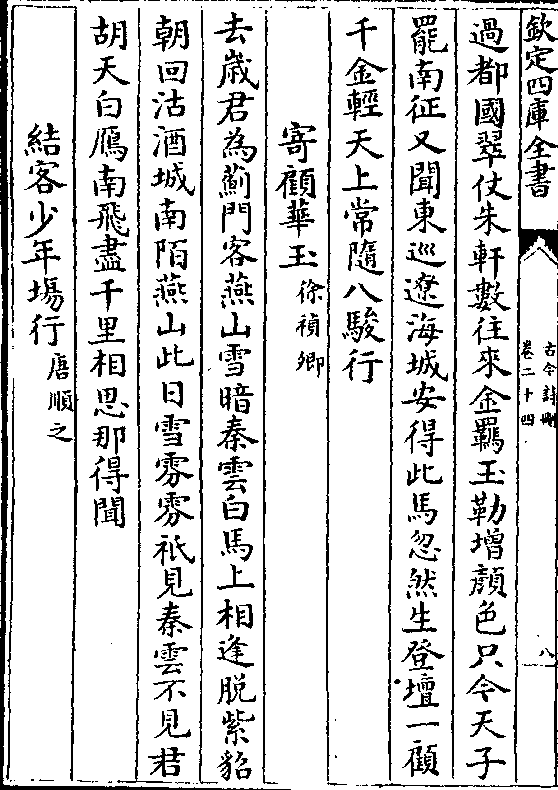 欽定四庫全書
古今詩刪
卷二十四
八
過都國翠仗朱軒數往來金羈玉勒增顏色只今天子
罷南征又聞東巡遼海城安得此馬忽然生登壇一顧
千金輕天上常隨八駿行
寄顧華玉 徐禎卿
去歲君為薊門客燕山雪暗秦雲白馬上相逢脱紫貂
朝回沽酒城南陌燕山此日雪雰雰祇見秦雲不見君
胡天白鴈南飛盡千里相思那得聞
結客少年場行 唐順之